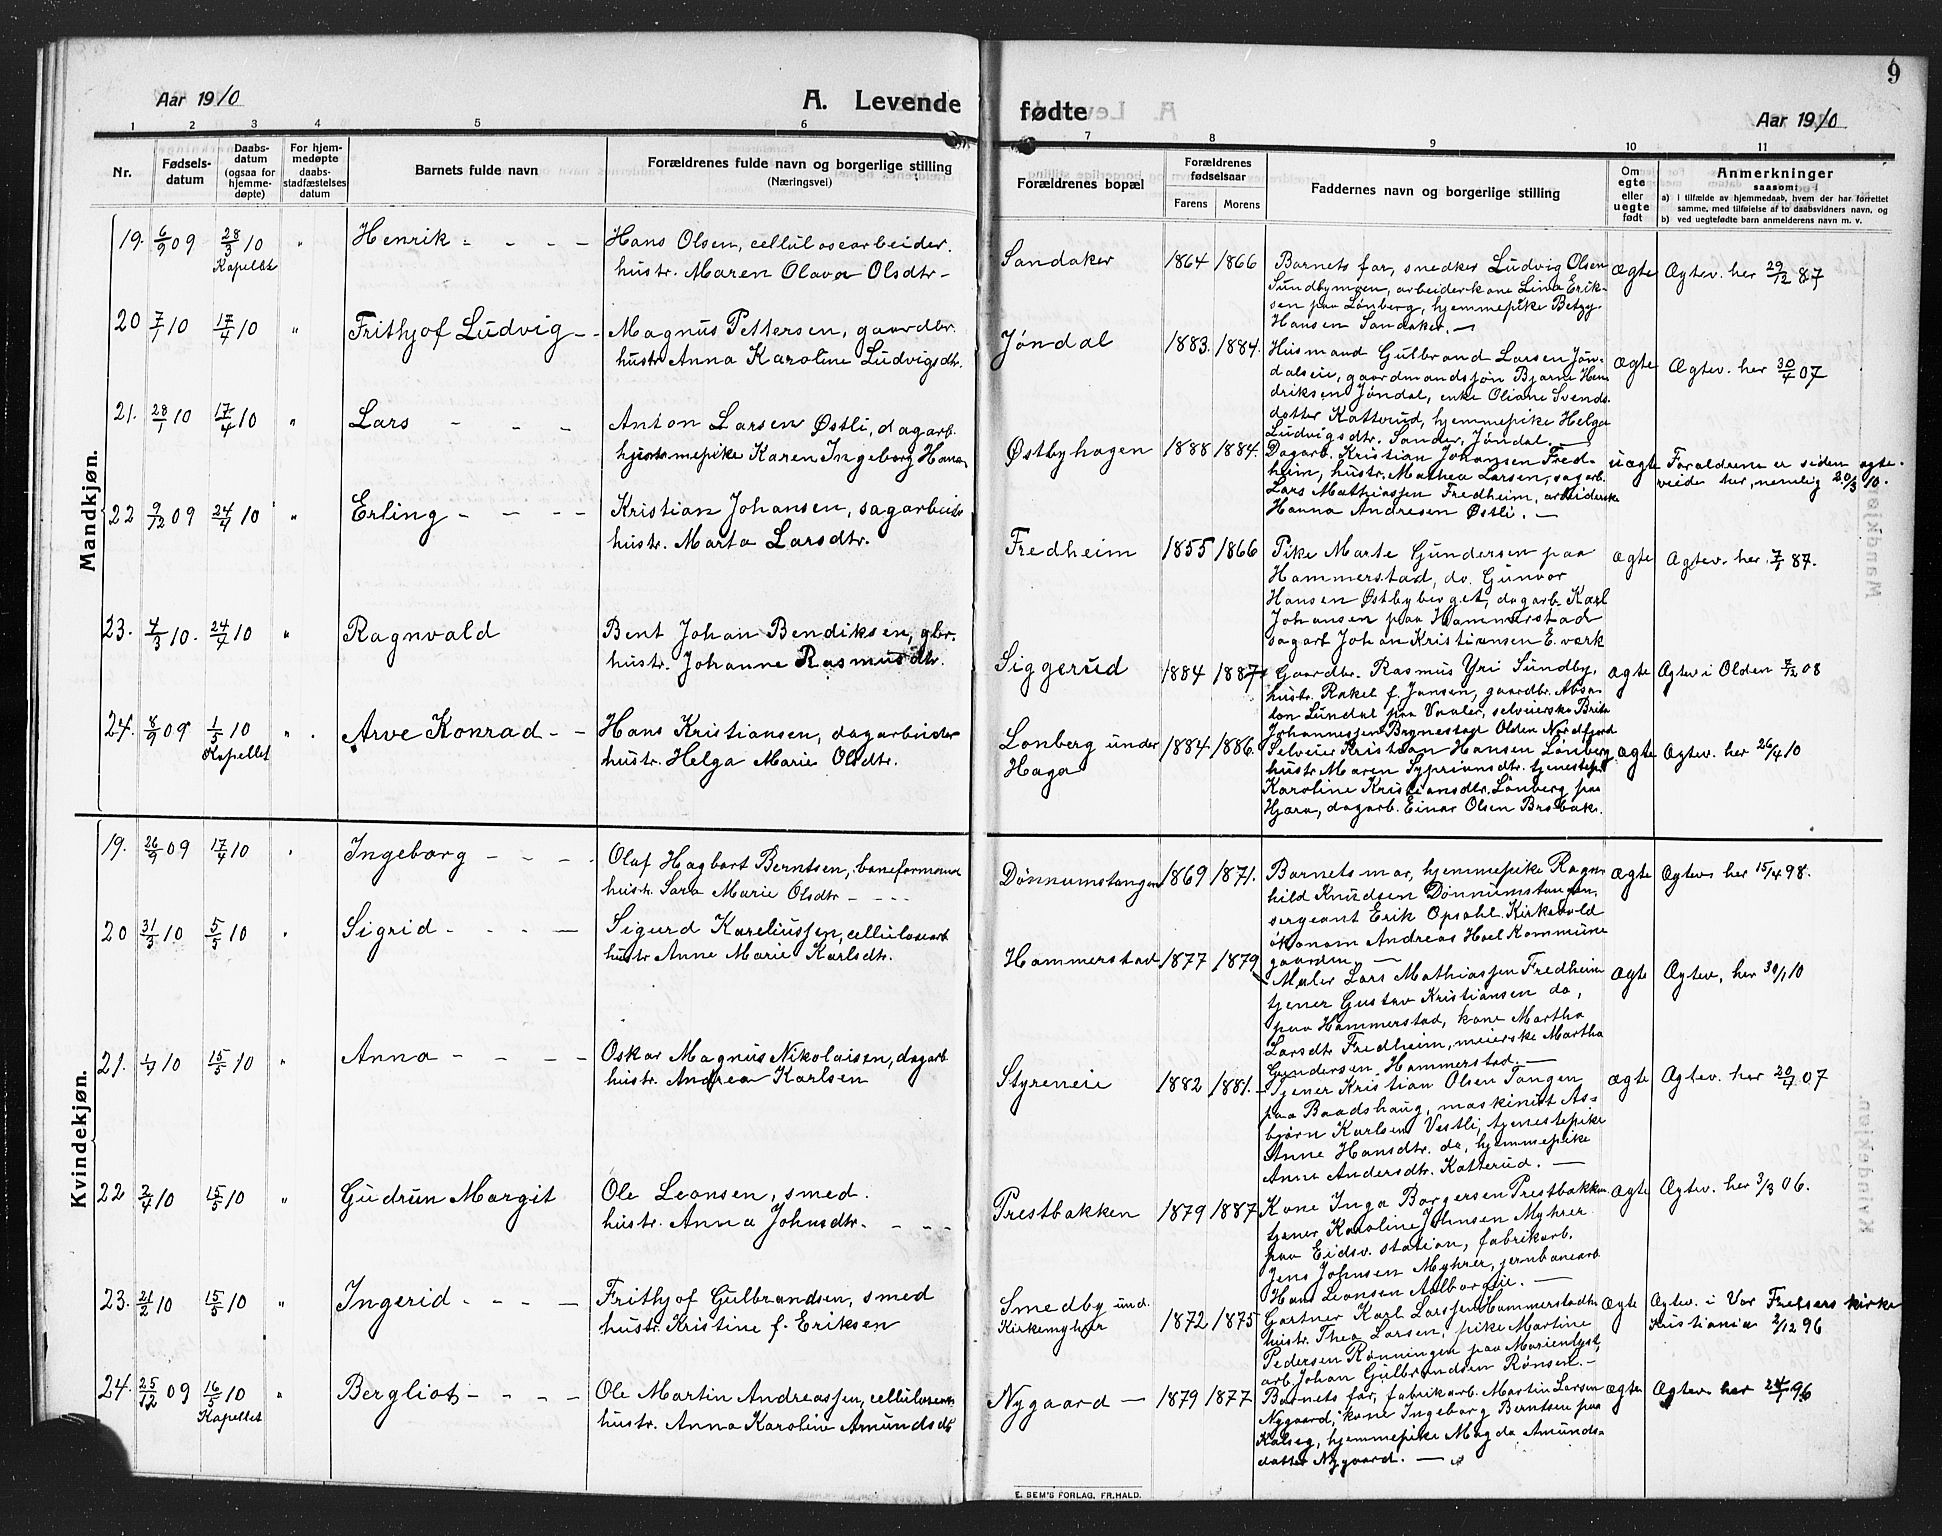 9
Aar 1910
A. Levende fødte
Aar 1910
1 2 3 4 5 6 7 8 9 10 11
Nr.
Fødsels-
datum
Daabs-
datum
(ogsaa for
hjemme-
døpte)
For hjem-
medøpte
daabs-
stadfæstelses
datum
Barnets fulde navn
Forældrenes fulde navn og borgerlige stilling
(Næringsvei)
Forældrenes bopæl
Forældrenes
fødselsaar
Farens Morens
Faddernes navn og borgerlige stilling
Om
egte
eller
uegte
født
Anmerkninger
saasom:
a) i tilfælde av hjemmedaab, hvem der har forrettet
samme, med tilføielse af to daabsvidners navn, og
b) ved uegtefødte barn anmelderens navn m. v.
Mandkjøn.
19. 6/9 09 28/3 10 Kapellet " Henrik
Hans Olsen, cellulosearbeider.
hustr. Maren Olava Olsdtr
Sandaker 1864 1866
Barnets far, snedker Ludvig Olsen
Sundbymoen, arbeiderkone Lina Erik-
sen paa Lønberg, hjemmepike Betzy
Hansen Sandaker.
ægte Ægtev. her 29/12 87
20 7/1 10 17/4 10 " Frithjof Ludvig
Magnus Pettersen, gaardbr.
hustr Anna Karoline Ludvigsdtr.
Jøndal 1883. 1884.
Husmand Gulbrand Larsen Jøn-
dalseie, gaardmandsøn Bjarne Hen
driksen Jøndal, enke Oliane Svends-
datter Katterud, hjemmepike Helga
Ludvigsdtr. Sander, Jøndal.
ægte Ægtev. her 30/4 07
21. 28/1 10 17/4 10 " Lars
Anton Larsen Østli, dagarb.
hjemmepike Karen Ingeborg Hans
Østbyhagen 1888 1884.
Dagarb. Kristian Johansen Fred-
heim, hustr. Mathea Larsen, sagarb.
Lars Mathiassen Fredheim, arbeiderske
Hanna Andresen Østli.
uægte Forældrene er siden ægte-
viede her, nemlig 20/3 10.
22 9/12 09 24/4 10 " Erling
Kristian Johansen, sagarbeide
hustr. Marta Larsdtr.
Fredheim 1855 1866
Pike Marte Gundersen paa
Hammerstad, do. Gunvor
Hansen Østbyberget, dagarb. Karl
Johansen paa Hammerstad
sagarb Johan Kristiansen E. værk
ægte Ægtev. her. 7/1 87.
23. 4/3 10. 24/4 10 " Ragnvald
Bent Johan Bendiksen, gbr.
hustr. Johanne Rasmusdtr.
Siggerud 1884 1887
Gaardbr. Rasmus Yri Sundby,
hustr. Rakel f. Jansen, gaardbr. Absa-
lon Lundal paa Vaaler, selveierske Brita
Johannessen Brynestad Olden Nordfjord
ægte Ægtev i Olden 7/2 08
24. 8/9 09 1/5 10 Kapellet " Arve Konrad
Hans Kristiansen, dagarbeider
hustr. Helga Marie Olsdtr.
Lønberg under
Haga 1884 1886.
Selveier Kristian Hansen Lønberg,
hustr Maren Sypriansdtr. tjenestep.
Karoline Kristiansdtr. Lønberg paa
Hjera, dagarb. Einar Olsen Brobak.
ægte Ægtev. her 26/4 10
Kvindekjøn.
19. 26/9 09 17/4 10 " Ingeborg
Olaf Hagbart Berntsen, baneformand
hustr. Sara Marie Olsdtr
Dønnumstangen 1869 1871.
Barnets mor, hjemmepike Ragn
hild Knudsen Dønnumstangen,
sergeant Erik Opsahl Kirkevold
økonom Andreas Hoel Kommune
gaarden
ægte Ægtev her 15/4 98.
20 31/3 10 5/5 10 " Sigrid
Sigurd Kareliussen, cellulosearb
hustr Anne Marie Karlsdtr.
Hammerstad 1877 1879
Maler Lars Mathiassen Fredheim
tjener Gustav Kristiansen do,
paa Hammerstad, kone Martha
Larsdtr Fredheim, meierske Martha
Gundersen Hammerstad.
ægte Ægtev. her 30/1 10
21. 1/4 10 15/5 10 " Anna
Oskar Magnus Nikolaisen, dagarb
hustr. Andrea Karlsen
Styreneie 1882 1881.
Tjener Kristian Olsen Tangen
paa Baadshaug, maskinist As-
bjørn Karlsen Vestli, tjenestepike
Anne Hansdtr. do, hjemmepike
Anna Andersdtr. Katterud.
ægte Ægtev. her 20/4 07
22 2/4 10 15/5 10 " Gudrun Margit
Ole Leonsen, smed.
hustr. Anna Johnsdtr.
Prestbakken 1879 1887
Kone Inga Borgersen Prestbakken
tjener Karoline Johnsen Myhrer
paa Eidsv. station, fabrikarb.
Jens Johnsen Myhrer, jernbanearb
Hans Leonsen
ægte Ægtev. her 3/3 06.
23. 21/2 10 15/5 10 " Ingerid
Frithjof Gulbrandsen, smed
hustr. Kristine f. Eriksen
Smedby und.
Kirkemyhrer 1872 1875
Gartner Karl Larssen Hammerstad
hustr. Thea Larsen, pike Martine
Pedersen Rønningen paa Marienlyst,
arb. Johan Gulbrandsen Rønsen.
ægte Ægtev. i Vor Frelsers kirke
Kristiania 2/12 96
24. 25/12 09 16/5 10 Kapellet " Bergliot
Ole Martin Andreassen, cellulosearb
hustr. Anna Karoline Amundsdtr
Nygaard 1879 1877
Barnets far, fabrikarb. Martin Larsen
Nygaard, kone Ingeborg Berntsen paa
Kalseg, hjemmepike Magda Amunds-
datter Nygaard.
ægte Ægtev. her 24/1 96
E. SEM'S FORLAG, FR.HALD.